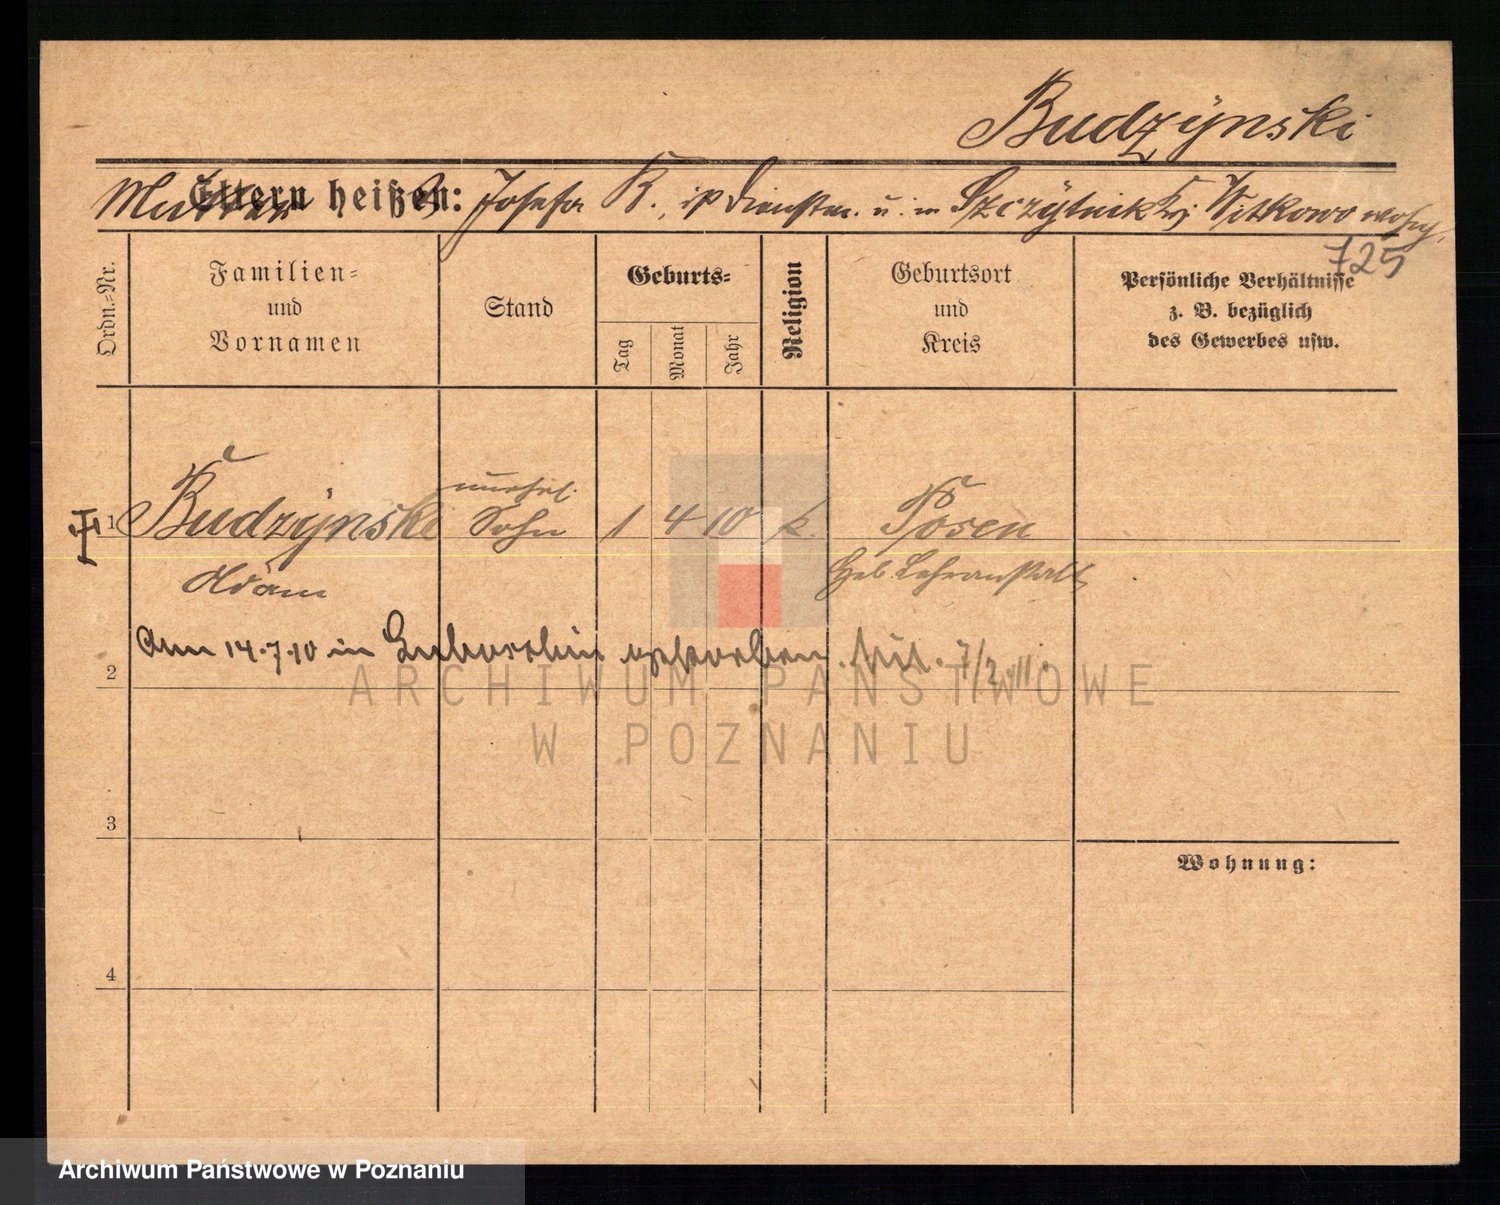 Budzynski
Mutter Eltern heißen: Josefa B., ist Dienstm. u. in Szczytnik Kr. Witkowo wohn.
725
Ordn.-Nr.
Familien-
und
Vornamen
Stand
Geburts-
Tag
Monat
Jahr
Religion
Geburtsort
und
Kreis
Persönliche Verhältnisse
z. B. bezüglich
des Gewerbes usw.
1 Budzynski unehel. Sohn 1 4 10 k. Posen
Adam Heb Lehranstalt
Am 14.7.10 in gestorben.
2
ARCHIWUM PAŃSTWOWE
W POZNANIU
3
Wohnung:
4
Archiwum Państwowe w Poznaniu